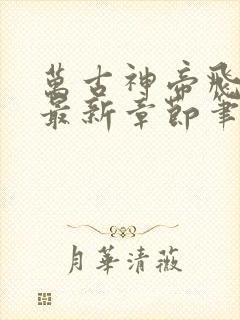 萬古神帝飛
最新章節筆
月華清薇